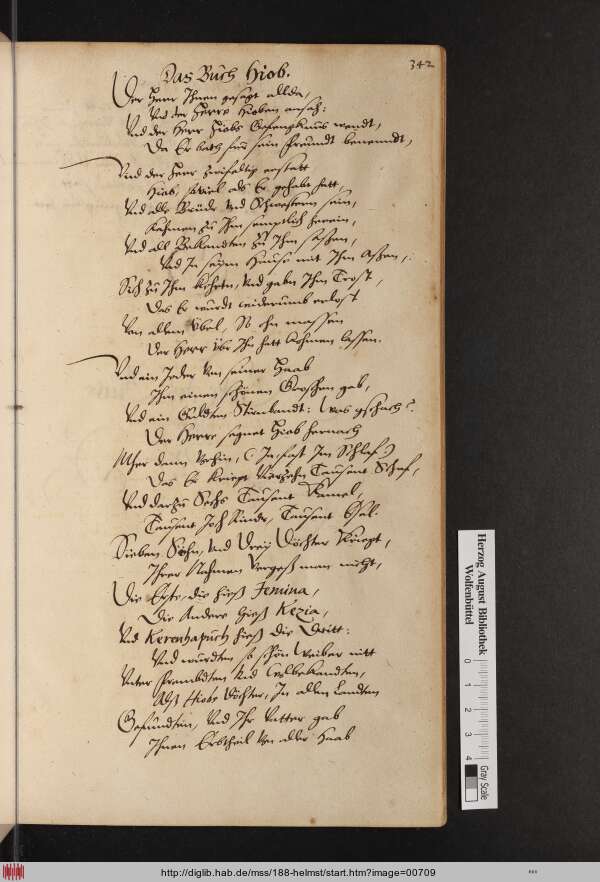 342
Das Buch Hiob.
Der Herr Ihnen gesagt allda,
Und der Herre Hioben ansah:
Und der Herr Hiobs Gefengknus wendt,
Da Er bath für sein freundt benendt,
Und der Herr zwifaltig erstatt
Hiob, so viel als Er gehabt hatt,
Und alle Brüder Und Schwestern sein,
Kahmen zu Ihm semptlich herein,
Und all Bekandten zu Ihm sassen,
Und In seim Hause mit Ihm Assen,
Sich zu Ihm Kehrten, Und gabn Ihm Trost,
Das Er wurdt widerumb erlost
Von allem Übel, So ohn massen
Der Herr Übr Ihn hatt kohmen lassen.
Und ein Jeder Von seiner Haab
Ihm einen schönen Groschen gab,
Und ein Gulden Stirnbandt: Was gschach?
Der Herre segnet Hiob hernach
Mher dann Vorhin, (
Das Er kriegt Vierzehn Tausent Schaf,
Und darzu Sechs Tausent Kamel,
Tausent Joch Rinder, Tausent Esel.
Sieben Söhn, Und Dreÿ Döchter Kriegt,
Ihrer Nahmen Vergeß man nicht,
Die Erste, die hieß Jemina,
Die Ander hieß Kezia,
Und Kerenhapuch hieß die Dritt:
Und wurdten so schön Weiber nitt
Unter frembdten Und Wolbekandten,
Alß Hiobs Döchter, In allen Landten
Gefundten, Und Ihr Vatter gab
Ihnen Erbtheil Von aller Haab
Herzog August Bibliothek
Wolfenbüttel
0 1 2 3 4
Gray Scale
http://diglib.hab.de/mss/188-helmst/start.htm?image=00709